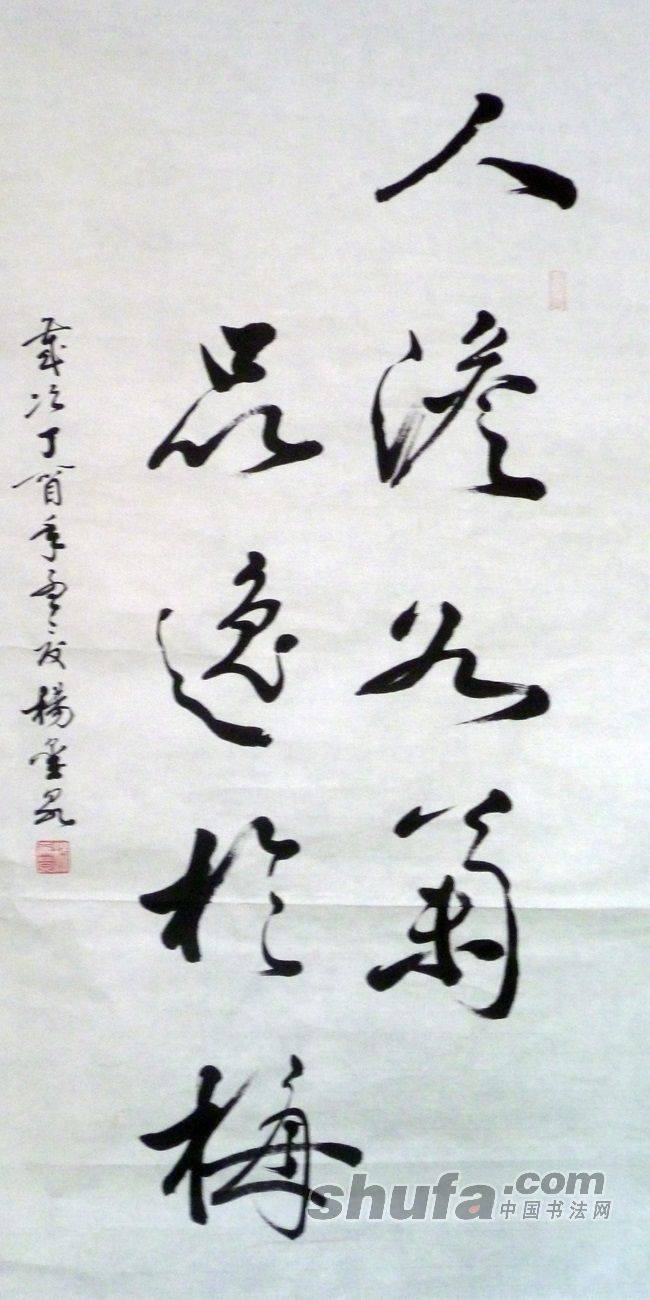 人澹如菊
品逸於梅
歲次丁酉年孟夏楊泉
shufa.com
中国书法网